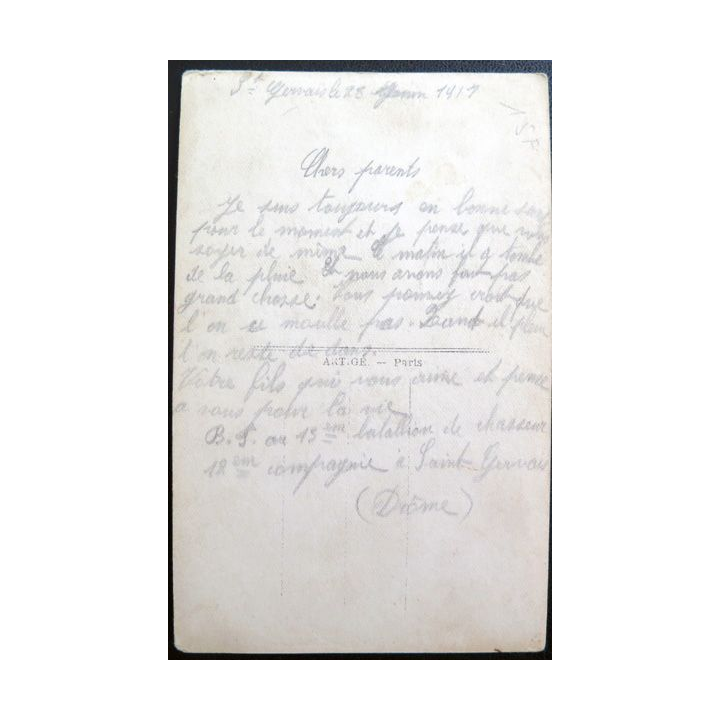 St Gervais le 23 1917
Chers parents
Je suis toujours en bonne
pour le moment et je pense que vous
soyer de même ce matin il y tombe
de la pluie Et nous avons fait pas
grand chosse. Vous pouvez croire que
l'on ce mouille pas. Quant il pleu
l'on reste de dans.
ARTIGE. — Paris
Votre fils qui vous aime et pense
a vous pour la vie
B. S. au 15em batallion de chasseur
12em compagnie à Saint Gervais
(Drôme)